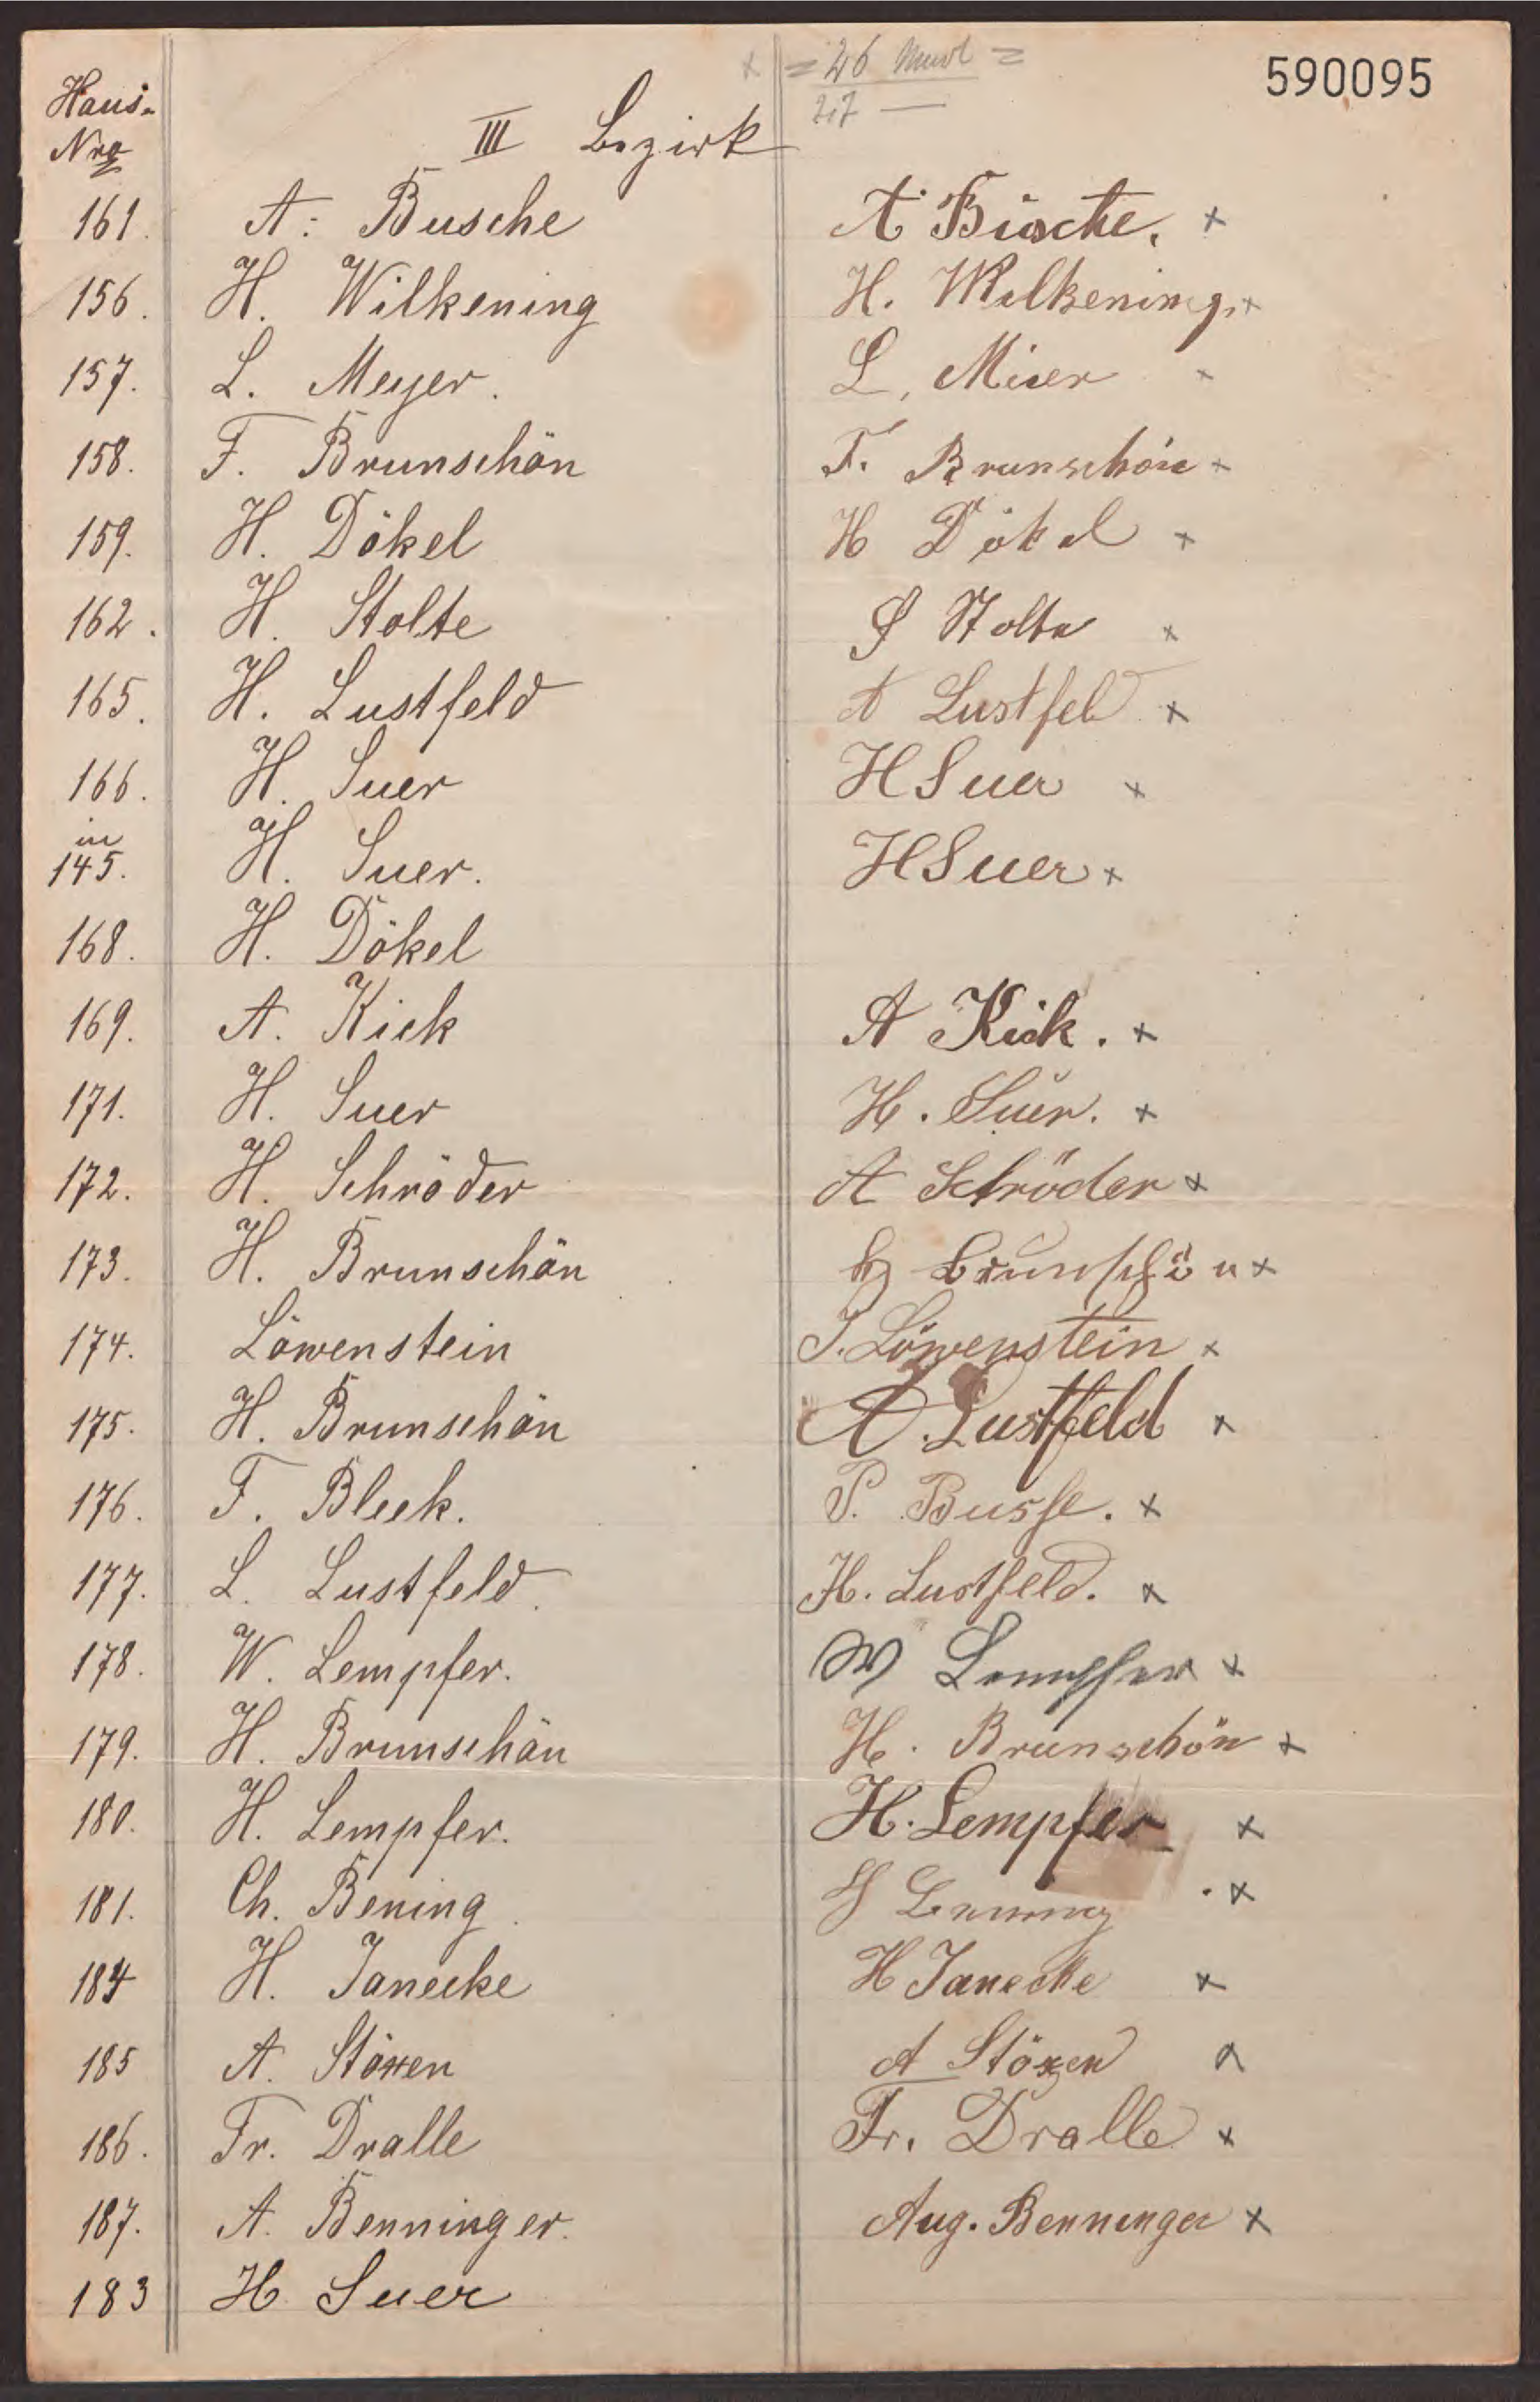 × = 26 =
590095
Haus-
27 —
Nro
III Bezirk
161. A. Busche A Busche. ×
156. H. Wilkening H. Wilkening. ×
157. L. Meyer. L. Meier ×
158. F. Brunschön F. Brunschön ×
159. H. Dökel H Dökel ×
162. H. Stolte S Stolte ×
165. H. Lustfeld A Lustfeld ×
166. H. Suer H Suer ×
in
145. H. Suer. H Suer ×
168. H. Dökel
169. A. Kiek A Kiek. ×
171. H. Suer H. Suer. ×
172. H. Schröder A Schröder ×
173. H. Brunschön H Brunschön ×
174. Löwenstein J. Löwenstein ×
175. H. Brunschön A. Lustfeld ×
176. F. Bleek. P. Busse. ×
177. L. Lustfeld. H. Lustfeld. ×
178. W. Lempfer. W Lempfer ×
179. H. Brunschön H. Brunschön ×
180. H. Lempfer. H. Lempfer ×
181. Ch. Bening. Bening ×
184 H. Janecke H Janecke ×
185 A. Stöxen A Stöxen ×
186. Fr. Dralle Fr. Dralle ×
187. A. Benninger. Aug. Benninger ×
183 H. Suer